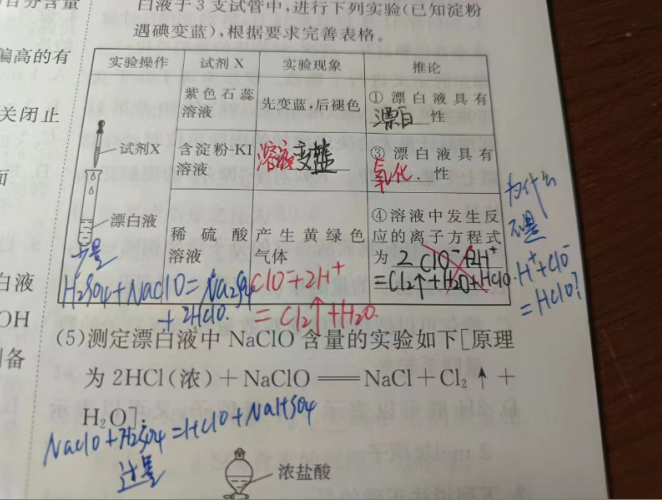 白液于3支试管中,进行下列实验(已知淀粉
遇碘变蓝),根据要求完善表格。
偏高的有
关闭止
面
白液
OH
备
实验操作 试剂 X 实验现象 推论
紫色石蕊
溶液
先变蓝,后褪色
① 漂白液具有
漂白 性
试剂X
含淀粉-KI
溶液
溶液变蓝
③ 漂白液具有
氧化 性
漂白液
少量
稀硫酸
溶液
产生黄绿色
气体
④溶液中发生反
应的离子方程式
为 2ClO⁻+2H⁺
=Cl₂↑+H₂O+HClO
ClO⁻+2H⁺
=Cl₂↑+H₂O.
H₂SO₄+NaClO=Na₂SO₄
+2HClO.
为什么
不是
H⁺+ClO⁻
=HClO?
(5)测定漂白液中 NaClO 含量的实验如下[原理
为 2HCl(浓)+NaClO══NaCl+Cl₂↑+
H₂O]:
NaClO+H₂SO₄=HClO+NaHSO₄
过量
浓盐酸